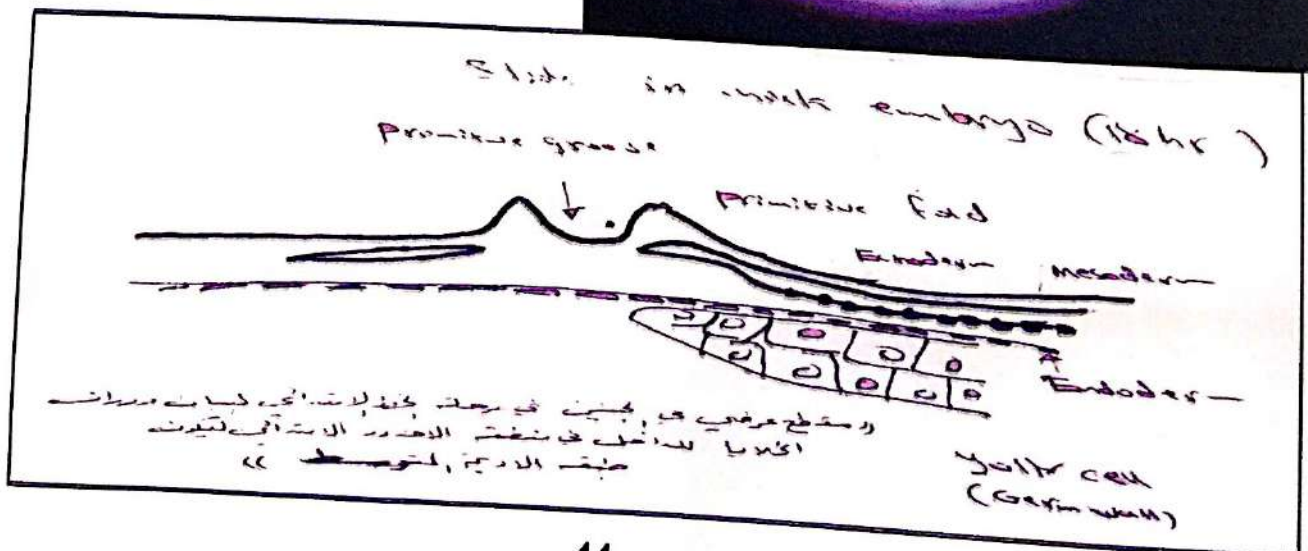 Slide in chick embryo (18hr)
Primitive groove
Primitive fold
Ectoderm Mesoderm
Endoderm
مقطع عرضي في الجنين في مرحلة الخط الابتدائي لبيان
الخلايا للداخل في منطقة الاخدود الابتدائي لتكون
طبقة الاديم المتوسط »
yolk cell
(Germ wall)
11